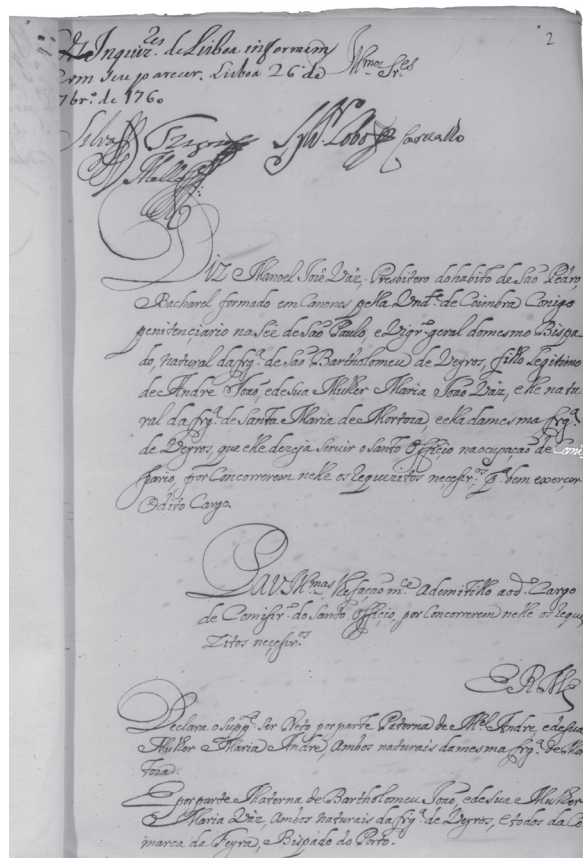 2
Inquir.es de Lisboa informem
com seu parecer. Lisboa 26 de
7br.o de 1760
Ill.mos Sr.es
Silva Trigoso Sylv.ro Lobo Carvalho
Mello
Diz Manoel José Váz, Presbitero do habito de Sao Pedro
Bacharel formado em Canones pella Und.e de Coimbra Conigo
penitenciario na Seé de Sao Paulo, e Vigr.o geral do mesmo Bispa-
do, natural da frg.a de Sao Bartholomeu de Veyros, filho legitimo
de André Joaó, e de sua Mulher Maria Joaó Váz, elle natu
ral da frg.a de Santa Maria de Mortoza, e ella da mesma frg.a
de Veyros, que elle dezeja servir o Santo Officio na ocupaçaó de Comi
sario, por Concorrerem nelle os requezitos necesir.os p.a bem exerçer
o dito Cargo.
P. a V. Ill.mas lhe façaó m.ce Ademitillo ao d.o Cargo
de Comisir.o do Santo Officio, por Concorrerem nelle os reque
zitos neçesir.os
E R M.ce
Declara o supp.e ser Neto por parte Paterna de M.el André, e de sua
Mulher Maria André, Ambos naturais da mesma frg.a de Mor
toza.
E por parte Materna de Bartholomeu Joaó, e de sua Mulher
Maria Váz, Ambos naturais da frg.a de Veyros, e todos da Co
marca da Feyra, e Bispado do Porto.